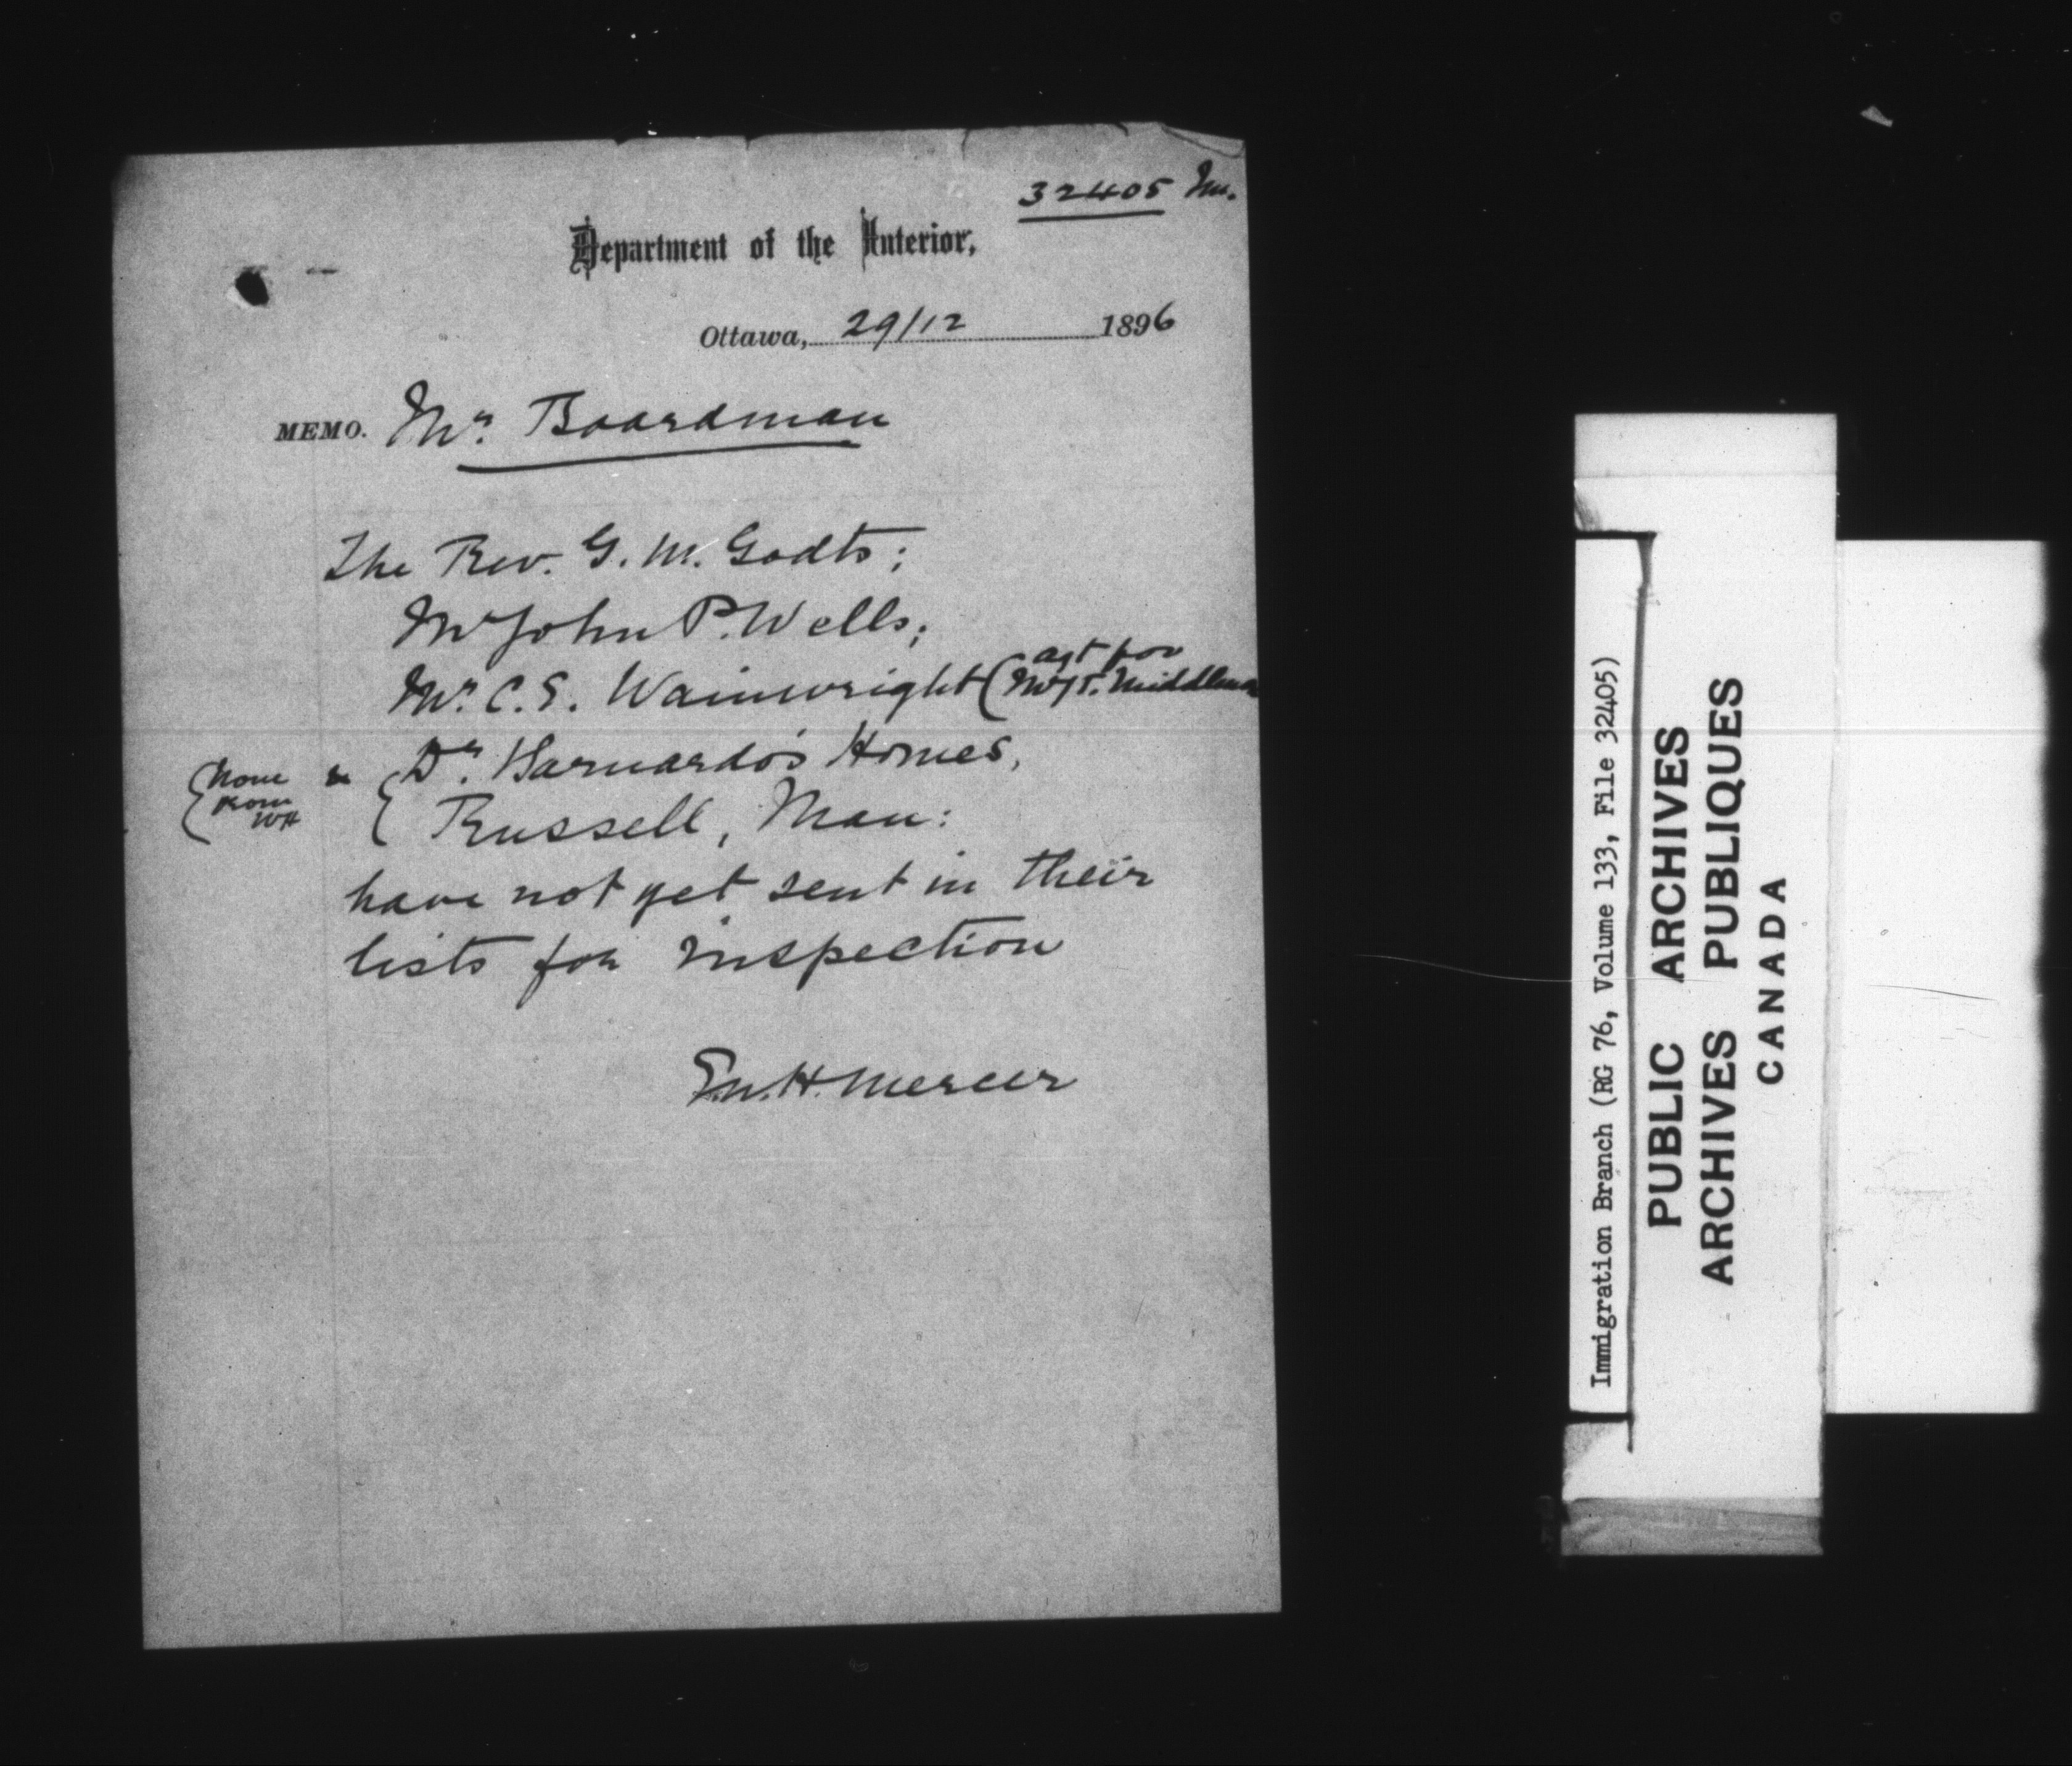 32405 Im.
Department of the Interior,
Ottawa, 29/12 1896
MEMO. Mr. Boardman
The Rev. G. M. Godts;
Mr John P. Wells;
Mr. C. E. Wainwright (agt for Mr J. T. Middlemore
& { Dr. Barnardo's Homes,
{ Russell, Man:
{ None
from
have not yet sent in their
lists for inspection
H. Mercer
Immigration Branch (RG 76, Volume 133, File 32405)
PUBLIC ARCHIVES
ARCHIVES PUBLIQUES
CANADA